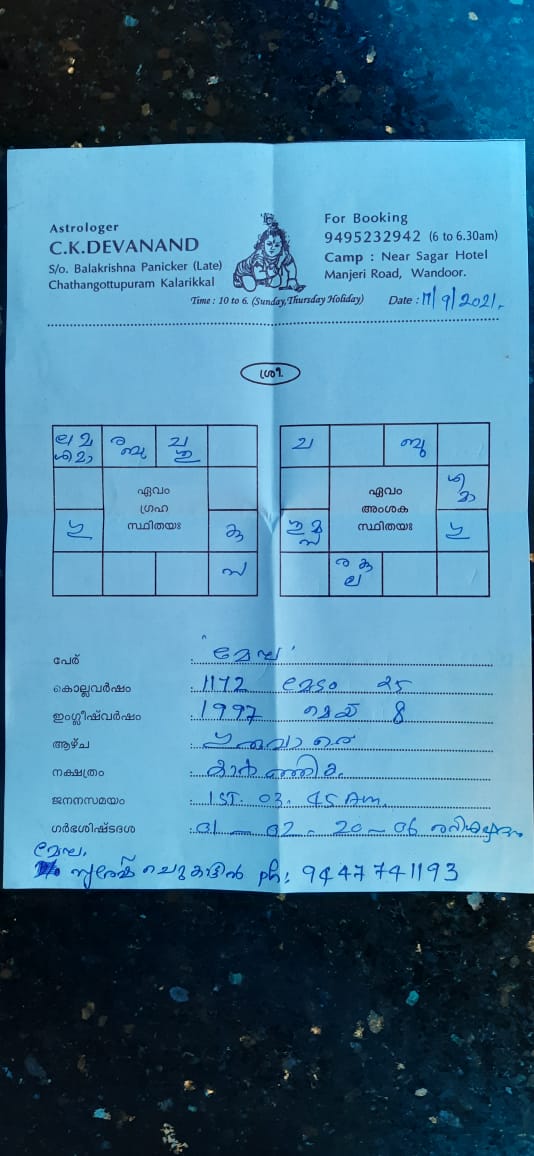 Astrologer
C.K.DEVANAND
S/o. Balakrishna Panicker (Late)
Chathangottupuram Kalarikkal
For Booking
9495232942 (6 to 6.30am)
Camp : Near Sagar Hotel
Manjeri Road, Wandoor.
Time : 10 to 6. (Sunday, Thursday Holiday) Date : 17/9/2021.
ശ്രീ.
ല മ
ശ മാ
ര ബു
ച
ഗു
കു
സ
ഏവം
ഗ്രഹ
സ്ഥിതയഃ
ച
ബു
ശ
മാ
ര കു
ല
ഏവം
അംശക
സ്ഥിതയഃ
പേര് : 'മേഘ'
കൊല്ലവർഷം : 1172 മേടം 25
ഇംഗ്ലീഷ്‌വർഷം : 1997 മെയ് 8
ആഴ്ച :
നക്ഷത്രം : കാർത്തിക.
ജനനസമയം : IST. 03. 45 Am.
ഗർഭശിഷ്ടദശ : 01 - 02 - 20 - 06
മേഘ,
ph: 9447741193